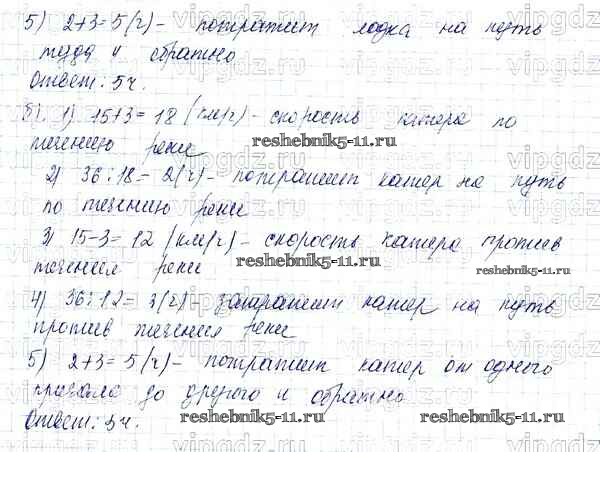 5) 2+3=5(ч)- потратит лодка на путь
туда и обратно
Ответ: 5ч.
б) 1) 15+3= 18 (км/ч)- скорость катера по
течению реки
2) 36:18= 2(ч)- потратит катер на путь
по течению реки
3) 15-3= 12 (км/ч)- скорость катера против
течения реки
4) 36:12= 3(ч)- затратит катер на путь
против течения реки
5) 2+3= 5(ч)- потратит катер от одного
причала до другого и обратно
Ответ: 5ч.
reshebnik5-11.ru
reshebnik5-11.ru
reshebnik5-11.ru
reshebnik5-11.ru
reshebnik5-11.ru
vipgdz.ru